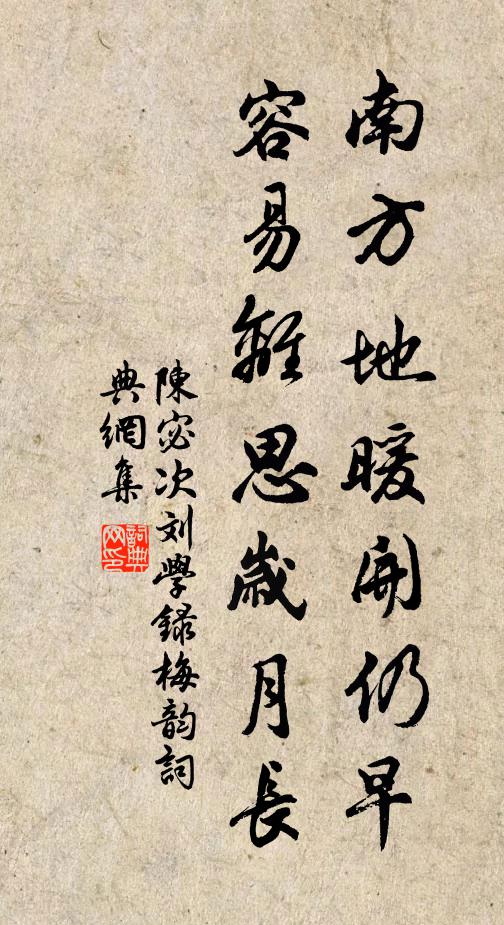 南方地暖開仍早
容易離思歲月長
陳宓次刘學錄梅韵詞
典網集
詞典网印